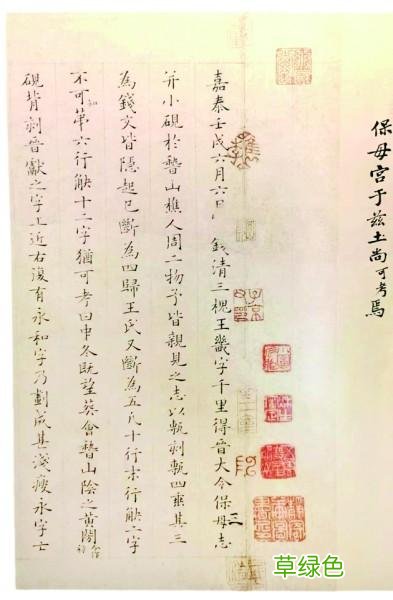 保母宫于兹土尚可考焉
嘉泰壬戌六月六日錢清三槐王畿字千里得晉大令保母志
并小硯於嵇山樵人周二物予皆親見之志以甎刻甎四垂其三
為錢文皆隱起已斷為四歸王氏又斷為五凡十行末行缺二字
不可知弟六行缺十二字猶可考曰中冬既望葬會嵇山陰之黃閍
硯背刻晉獻之字上近右復有永和字乃劃成甚淺瘦永字亡
草绿色